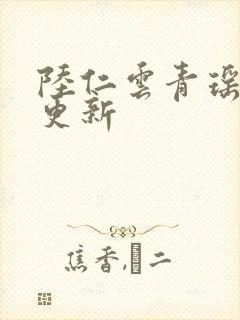 陸仁雲青瑶
更新
焦香,�二